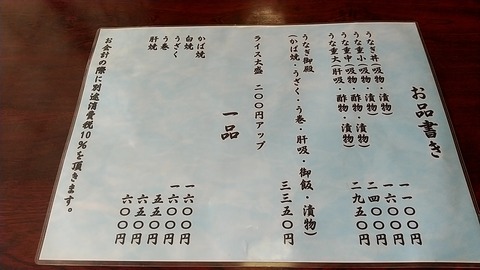 お品書き
うなぎ丼(吸物・漬物) 一一〇〇円
うな重小(吸物・漬物) 一六〇〇円
うな重中(吸物・酢物・漬物) 二四〇〇円
うな重大(肝吸・酢物・漬物) 二九五〇円
うなぎ御殿
(かば焼・うざく・う巻・肝吸・御飯・漬物) 三三五〇円
ライス大盛 二〇〇円アップ
一品
かば焼 一六〇〇円
白焼 一六〇〇円
うざく 五五〇円
う巻 六五〇円
肝焼 六〇〇円
お会計の際に別途消費税10%を頂きます。